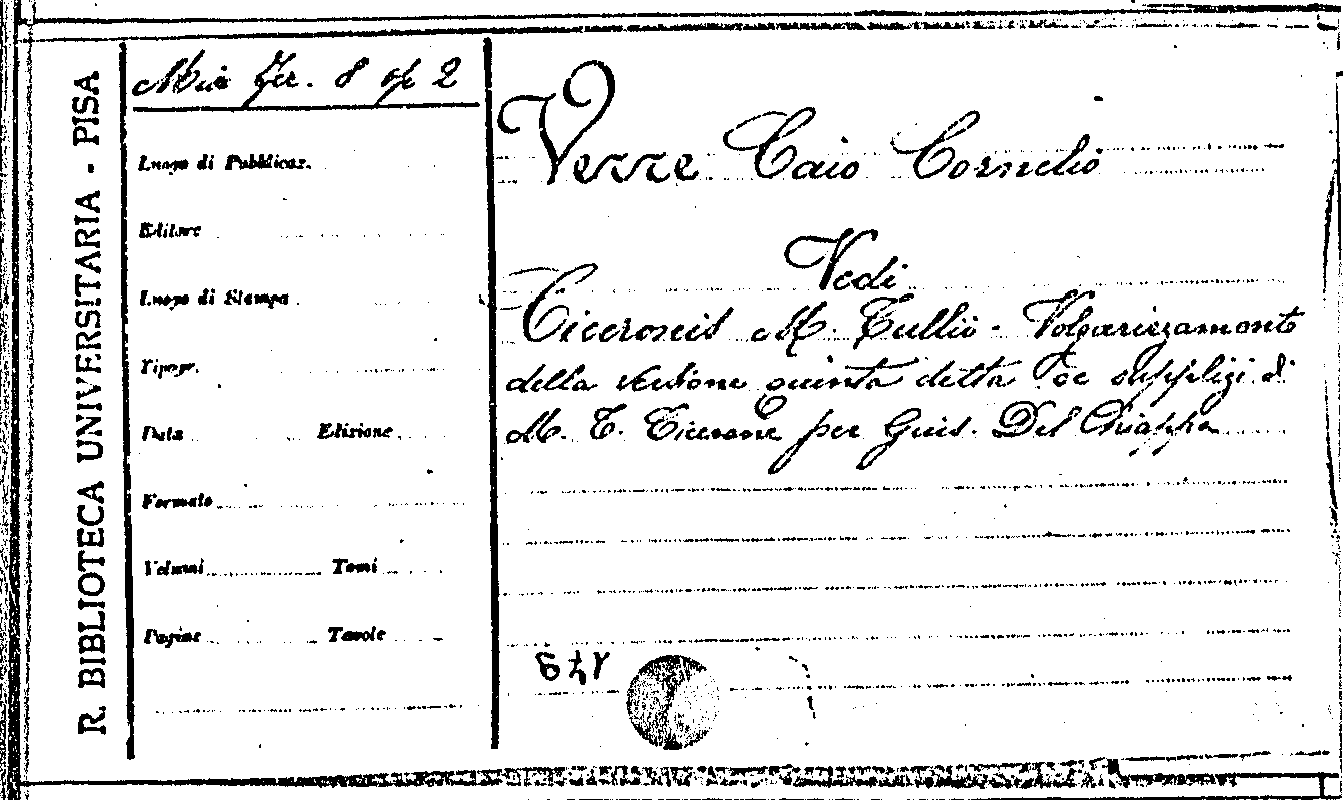 R. BIBLIOTECA UNIVERSITARIA - PISA
8 op 2
Luogo di Pubblicaz.
Editore
Luogo di Stampa
Tipogr.
Data Edizione
Formato
Volumi Tomi
Pagine Tavole
Verre Caio Cornelio
Vedi
Ciceronis M. Tullii - Volgarizzamento
della quinta detta de supplizi di
M. T. Cicerone per Gius. Del Chiappa